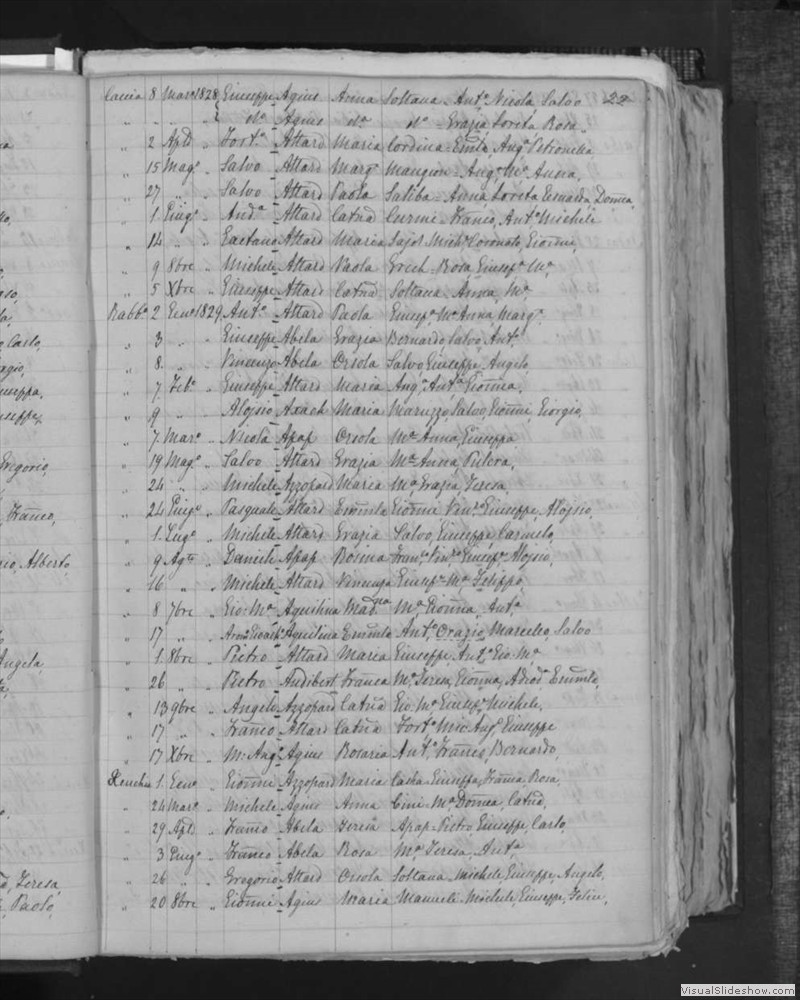 Caccia 8 Marzo 1828 Giuseppe Agius Anna Soltana - Ant.º Nicola Salvo 22
" " " " d.º Agius d.ª d.ª - Grazia Lorita Rosa
" 2 Ap.le " Fort.º Attard Maria Cordina Ang.ª Petronilla
" 15 Mag.º " Salvo Attard Marg.ª Mangion - Ang.ª M.ª Anna,
" 27 " " Salvo Attard Paola Saliba - Anna Lorita Domca,
" 1 Giug.º " And.ª Attard Catnd Curmi - Franco, Ant.º Michele
" 14 " " Gaetano Attard Maria Mich.e Coronato, Gionni,
" 9 8bre " Michele Attard Paola Grech - Rosa, Giusep.ª M.ª
" 5 Xbre " Giuseppe Attard Catnd Soltana - Anna, M.ª
Rabb.º 2 Gen.º 1829 Ant.º Attard Paola Giusep.ª M.ª Anna Marg.ª
" 3 " " Giuseppe Abela Grazia Bernardo Salvo Ant.º
" 8 " " Vincenzo Abela Orsola Salvo Giuseppe Angelo,
" 7 Feb.º " Giuseppe Attard Maria Ang.ª Ant.ª Gionna,
" 9 " " Aloisio Axach Maria Maruzzo, Salvo, Gionni, Giorgio,
" 7 Mar.º " Nicola Apap Orsola M.ª Anna, Giuseppa
" 19 Mag.º " Salvo Attard Grazia M.ª Anna,
" 24 " " Michele Azzopard Maria M.ª Grazia Teresa,
" 24 Giug.º " Pasquale Attard Gionni Vin.º Giuseppe, Aloisio,
" 1 Lug.º " Michele Attard Grazia Salvo, Giuseppe, Carmelo,
" 9 Ag.to " Daniele Apap Rosina Fran.º Vin.º Giusep.e Aloisio,
" 16 " " Michele Attard Vinnuza Giusep.e M.ª Felippo,
" 8 7bre " Gio: M.ª Aquilina Mad.na M.ª Gionna, Ant.ª
" 17 " " Aquilina Ant.º Orazio, Marcello, Salvo
" 1 8bre " Pietro Attard Maria Giuseppe, Ant.º Gio: M.ª
" 26 " " Pietro Audibert Franca M.ª Teresa, Gionna,
" 13 9bre " Angelo Azzopard Catnd Gio: M.ª Giusep.e Michele,
" 17 " " Franco Attard Catnd Fort.º Giuseppe
" 17 Xbre " M. Ang.º Agius Rosaria Ant.º Franco, Bernardo,
Xeuchia 1 Gen.º " Gionni Azzopard Maria Casha - Giuseppa, Franca Rosa,
" 24 Mar.º " Michele Agius Anna Cini - M.ª Domca, Catnd,
" 29 Ap.le " Franco Abela Teresa Apap - Pietro, Giuseppe, Carlo,
" 3 Giug.º " Franco Abela Rosa M.ª Teresa, Ant.ª
" 26 " " Gregorio Attard Orsola Soltana - Michele Giuseppe, Angelo,
" 20 8bre " Gionni Agius Maria Manueli - Michele, Giuseppe, Felice,
Carlo,
Angela,
Gregorio,
Franco,
Alberto
Teresa,
Paolo,
VisualSlideshow.com